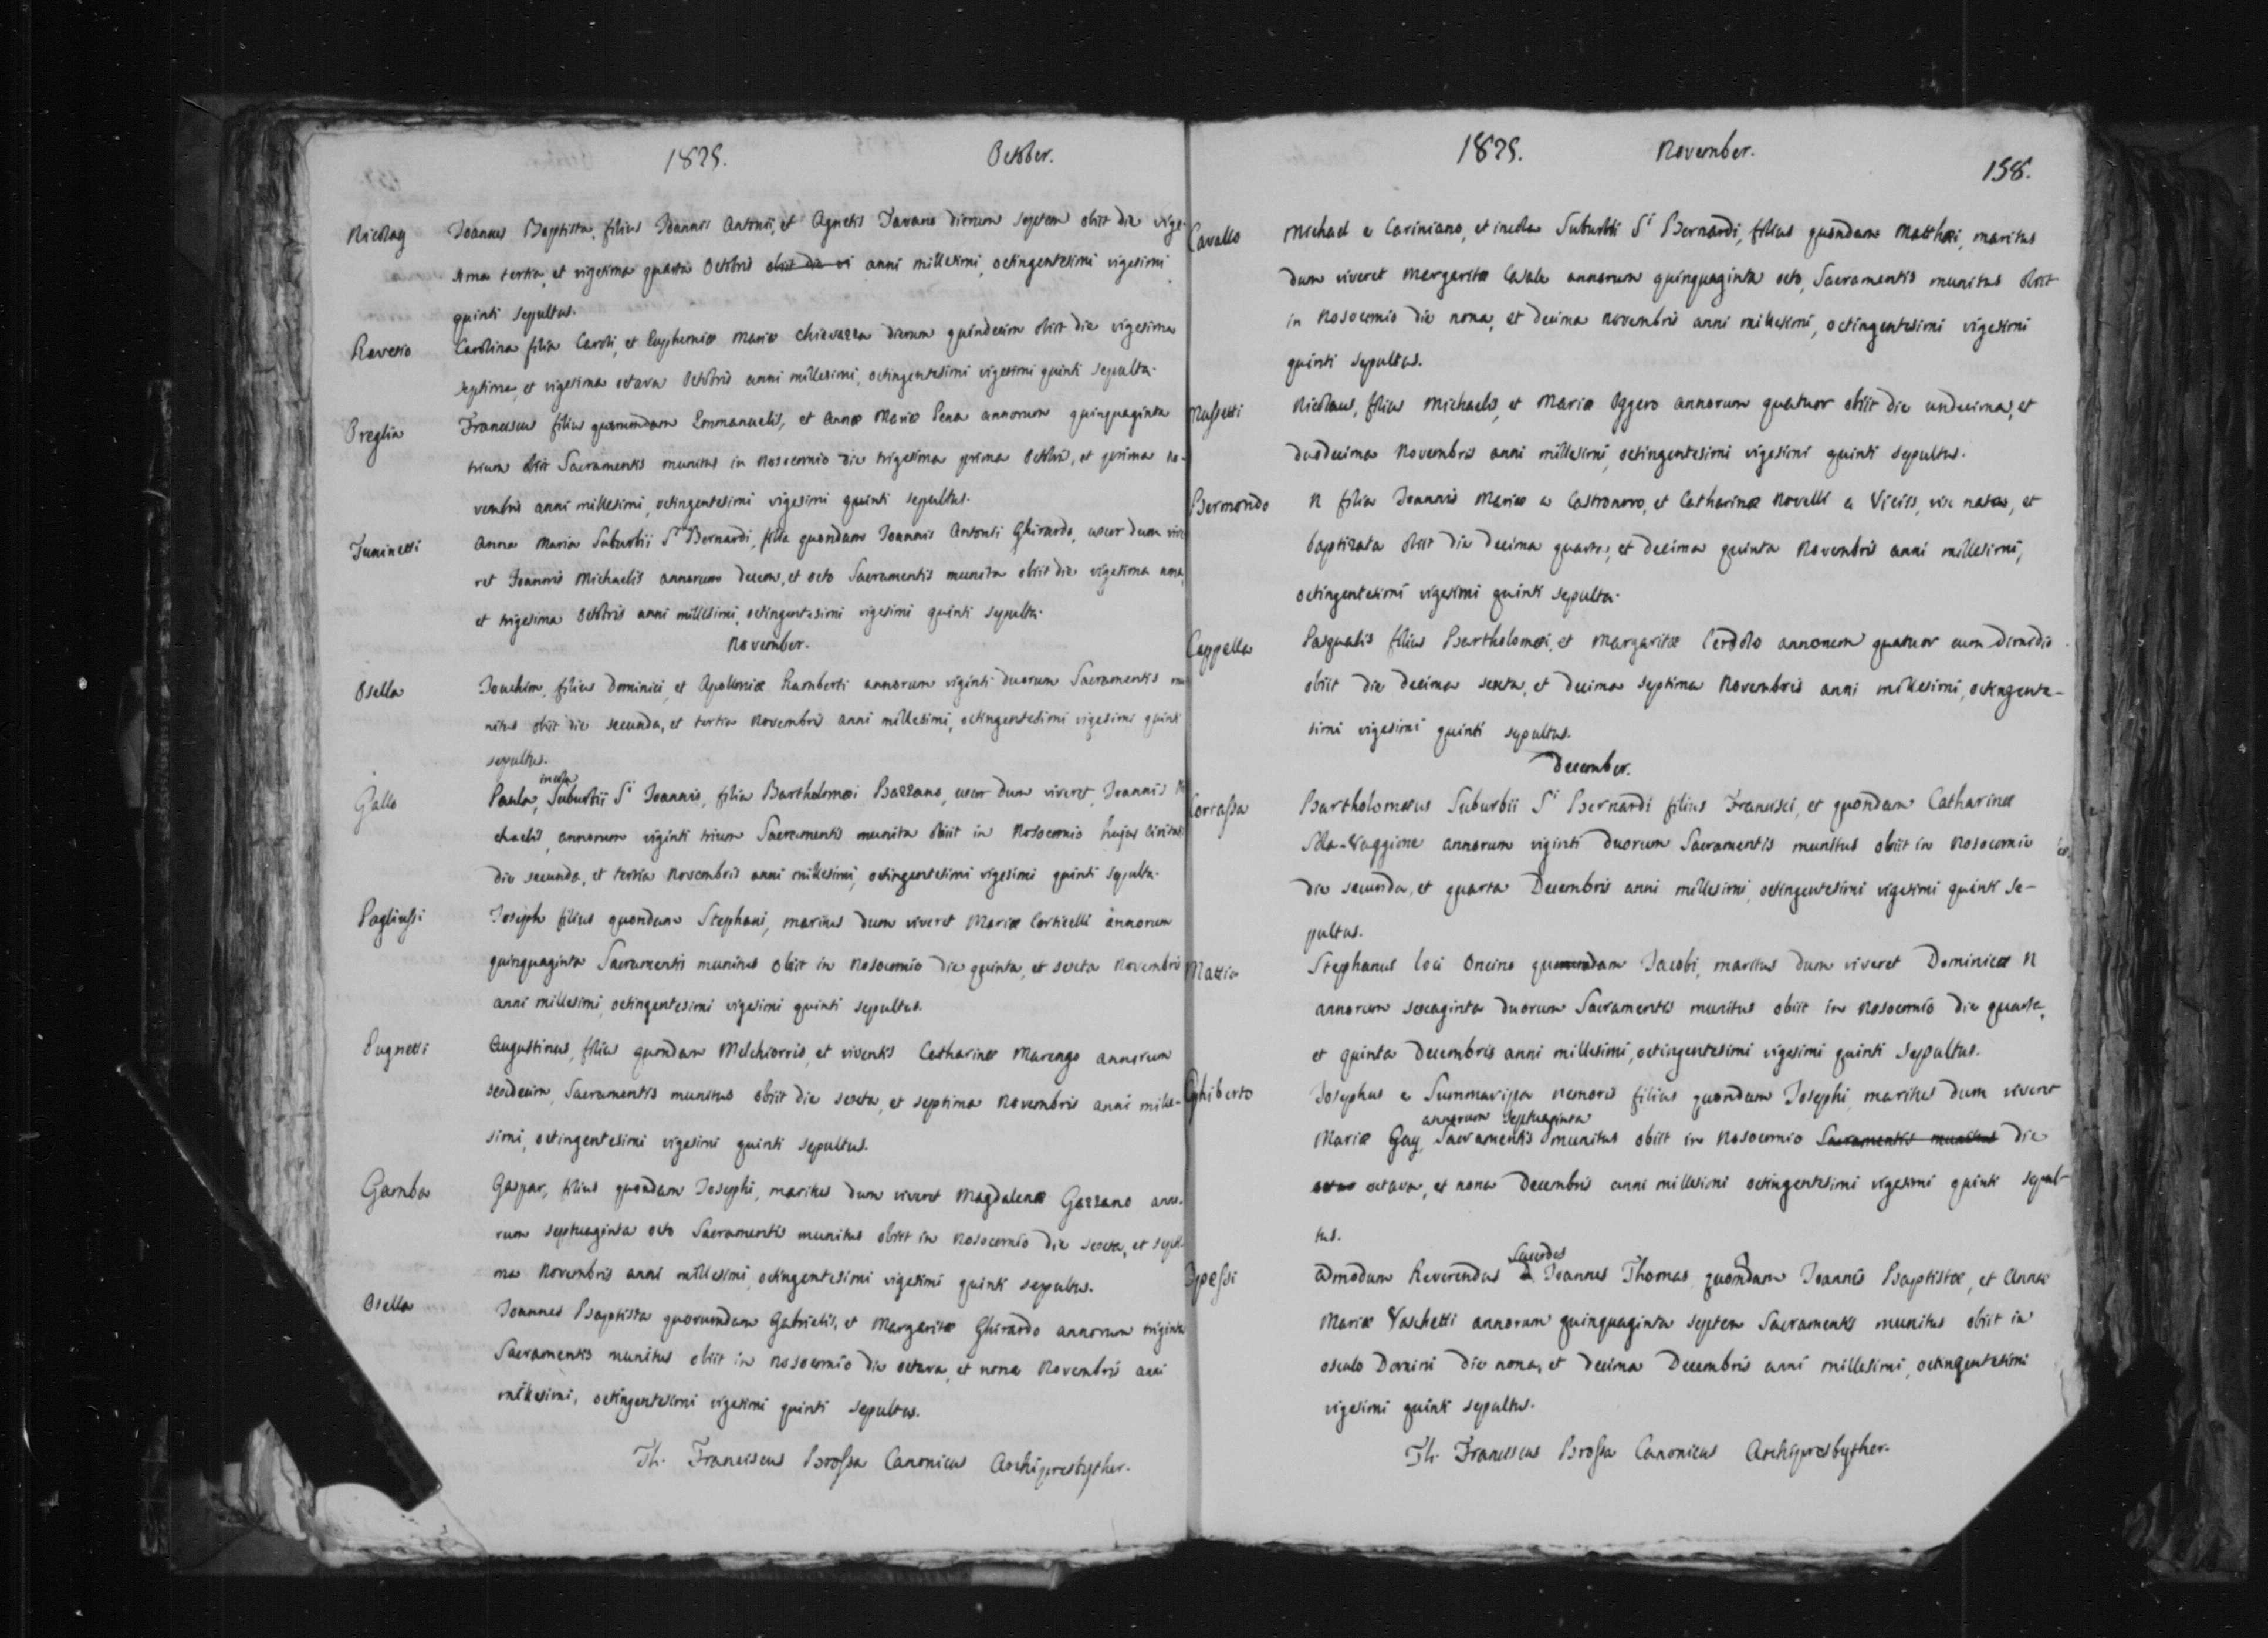 1825. October.
Nicolay Joannes Baptista, filius Joannis Antonii, et Agnetis Tavano dierum septem obiit die vige-
sima tertia, et vigesima quarta Octobris obiit die vi anni millesimi, octingentesimi vigesimi
quinti sepultus.
Raverio Carolina filia Caroli, et Euphemiæ Mariæ Chiavazza dierum quindecim obiit die vigesima
septima, et vigesima octava Octobris anni millesimi, octingentesimi vigesimi quinti sepulta.
Preglia Franciscus filius quorumdam Emmanuelis, et Annæ Mariæ Pena annorum quinquaginta
trium obiit Sacramentis munitus in Nosocomio die trigesima prima Octobris, et prima No-
vembris anni millesimi, octingentesimi vigesimi quinti sepultus.
Juninetti Anna Maria Suburbii Sti Bernardi, filia quondam Joannis Antonii Ghirardo, uxor dum vive
ret Joannis Michaelis annorum decem, et octo Sacramentis munita obiit die vigesima nona,
et trigesima Octobris anni millesimi, octingentesimi vigesimi quinti sepulta.
November.
Osella Joachim, filius Dominici, et Apolloniæ Ramberti annorum viginti duorum Sacramentis mu
nitus obiit die secunda, et tertia Novembris anni millesimi, octingentesimi vigesimi quinti
sepultus.
Gallo Paula, incola Suburbii Si Joannis, filia Bartholomæi Bazzano, uxor dum viveret, Joannis Mi
chaelis, annorum viginti trium Sacramentis munita obiit in Nosocomio hujus Civitatis
die secunda, et tertia Novembris anni millesimi, octingentesimi vigesimi quinti sepulta.
Pagliussi Joseph filius quondam Stephani, maritus dum viveret Mariæ Corticelli annorum
quinquaginta Sacramentis munitus obiit in Nosocomio die quinta, et sexta Novembris
anni millesimi, octingentesimi vigesimi quinti sepultus.
Pugnetti Augustinus, filius quondam Melchiorris, et viventis Catharinæ Marengo annorum
sexdecim, Sacramentis munitus obiit die sexta, et septima Novembris anni mille-
simi, octingentesimi vigesimi quinti sepultus.
Gamba Gaspar, filius quondam Josephi, maritus dum viveret Magdalenæ Gazzano anno-
rum septuaginta octo Sacramentis munitus obiit in Nosocomio die sexta, et septi-
ma Novembris anni millesimi, octingentesimi vigesimi quinti sepultus.
Osella Joannes Baptista quorumdam Gabrielis, et Margaritæ Ghirardo annorum triginta
Sacramentis munitus obiit in Nosocomio die octava, et nona Novembris anni
millesimi, octingentesimi vigesimi quinti sepultus.
Th. Franciscus Brossa Canonicus Archipresbyther.
1825. November. 158.
Cavallo Michael e Cariniano, et incola Suburbii Si Bernardi, filius quondam Matthæi, maritus
dum viveret Margaritæ Casale annorum quinquaginta octo, Sacramentis munitus obiit
in Nosocomio die nona, et decima Novembris anni millesimi, octingentesimi vigesimi
quinti sepultus.
Mussetti Nicolaus, filius Michaelis, et Mariæ Oggero annorum quatuor obiit die undecima, et
duodecima Novembris anni millesimi, octingentesimi vigesimi quinti sepultus.
Bermondo N filia Joannis Mariæ a Castronovo, et Catharinæ Novelli a Viciis, vix nata, et
baptizata obiit die decima quarta, et decima quinta Novembris anni millesimi,
octingentesimi vigesimi quinti sepulta.
Cappella Pasqualis filius Bartholomæi, et Margaritæ Cerdolo annorum quatuor cum dimidio
obiit die decima sexta, et decima septima Novembris anni millesimi, octingente-
simi vigesimi quinti sepultus.
December.
Cortassa Bartholomæus Suburbii Si Bernardi filius Francisci, et quondam Catharinæ
annorum viginti duorum Sacramentis munitus obiit in Nosocomio
die secunda, et quarta Decembris anni millesimi, octingentesimi vigesimi quinti se-
pultus.
Mattio Stephanus loci Oncino quondam Jacobi, maritus dum viveret Dominicæ N
annorum sexaginta duorum Sacramentis munitus obiit in Nosocomio die quarta,
et quinta Decembris anni millesimi, octingentesimi vigesimi quinti sepultus.
Ghiberto Josephus e Summaripa nemoris filius quondam Josephi, maritus dum viveret
Mariæ Gay, annorum septuaginta Sacramentis munitus obiit in Nosocomio Sacramentis munitus die
octava, et nona Decembris anni millesimi octingentesimi vigesimi quinti sepul-
tus.
Admodum Reverendus Sacerdos D. Joannes Thomas quondam Joannis Baptistæ, et Annæ
Mariæ Vaschetti annorum quinquaginta septem Sacramentis munitus obiit in
osculo Domini die nona, et decima Decembris anni millesimi, octingentesimi
vigesimi quinti sepultus.
Th. Franciscus Brossa Canonicus Archipresbyther.